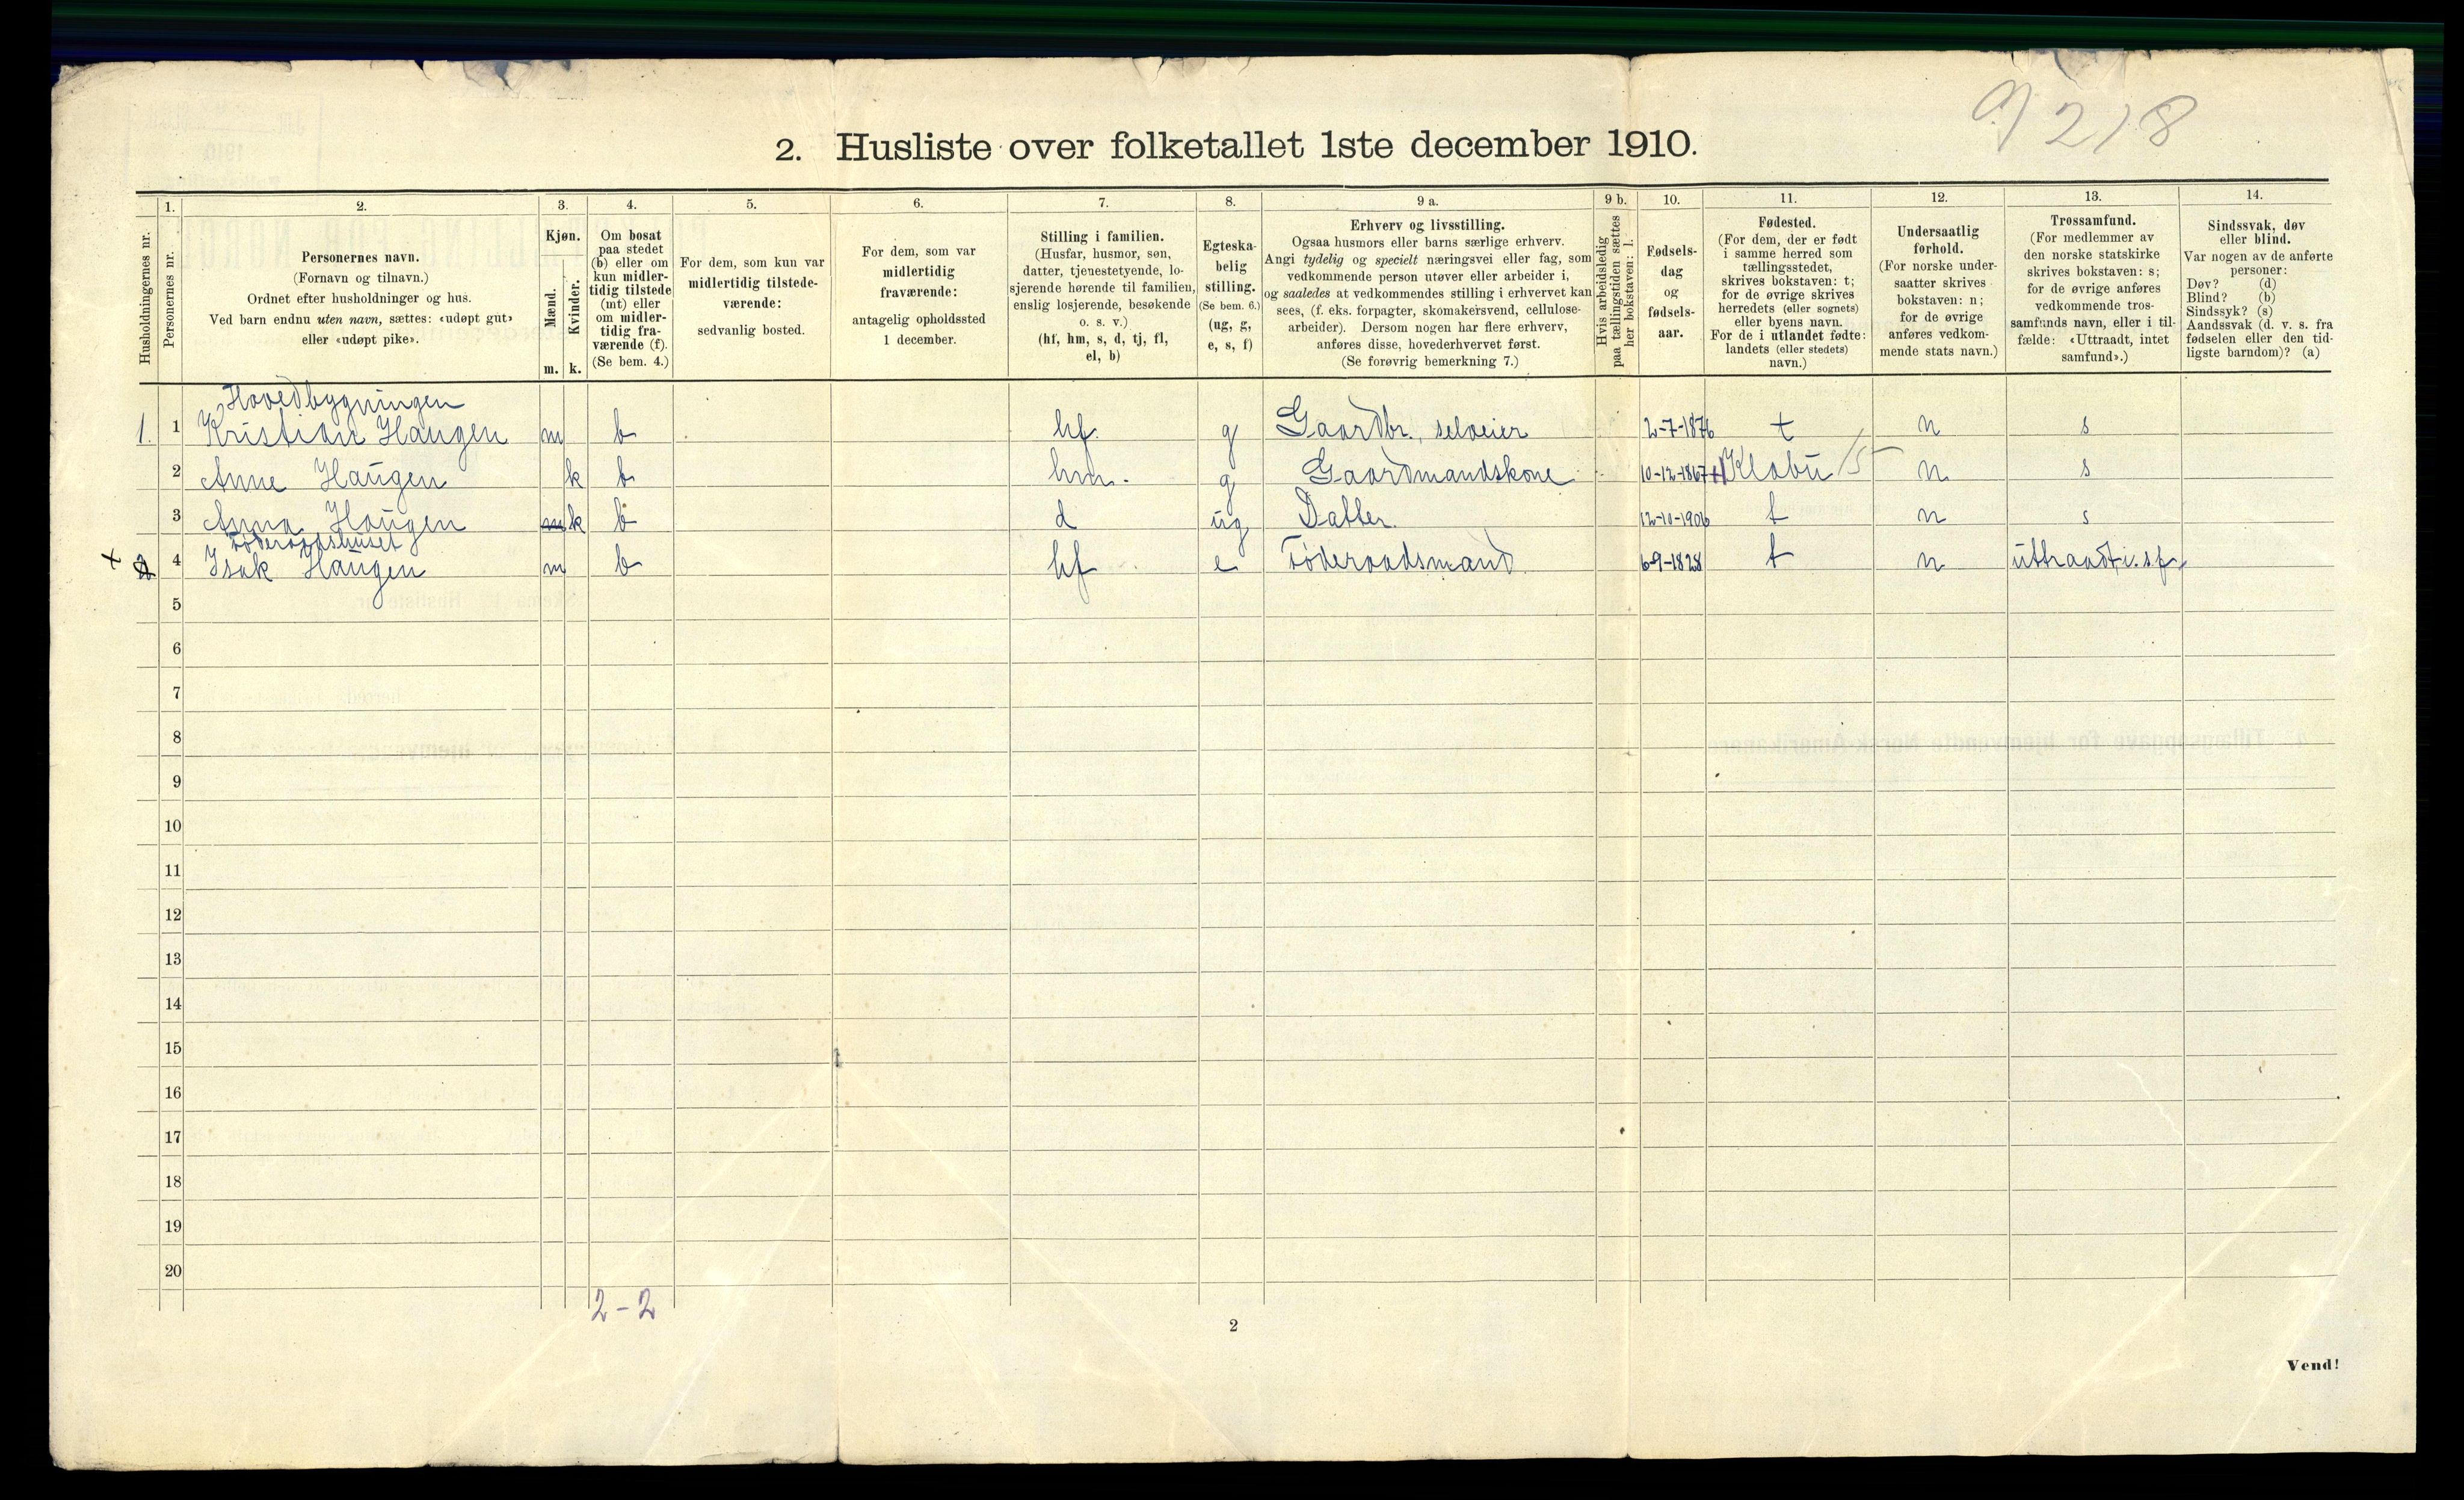 9) 218
2. Husliste over folketallet 1ste december 1910.
Husholdningernes nr.
1.
Personernes nr.
2.
Personernes navn.
(Fornavn og tilnavn.)
Ordnet efter husholdninger og hus.
Ved barn endnu uten navn, sættes: «udøpt gut»
eller «udøpt pike».
3.
Kjøn.
Mænd.
Kvinder.
m. k.
4.
Om bosat
paa stedet
(b) eller om
kun midler-
tidig tilstede
(mt) eller
om midler-
tidig fra-
værende (f).
(Se bem. 4.)
5.
For dem, som kun var
midlertidig tilstede-
værende:
sedvanlig bosted.
6.
For dem, som var
midlertidig
fraværende:
antagelig opholdssted
1 december.
7.
Stilling i familien.
(Husfar, husmor, søn,
datter, tjenestetyende, lo-
sjerende hørende til familien,
enslig losjerende, besøkende
o. s. v.)
(hf, hm, s, d, tj, fl,
el, b)
8.
Egteska-
belig
stilling.
(Se bem. 6.)
(ug, g,
e, s, f)
9 a.
Erhverv og livsstilling.
Ogsaa husmors eller barns særlige erhverv.
Angi tydelig og specielt næringsvei eller fag, som
vedkommende person utøver eller arbeider i,
og saaledes at vedkommendes stilling i erhvervet kan
sees, (f. eks. forpagter, skomakersvend, cellulose-
arbeider). Dersom nogen har flere erhverv,
anføres disse, hovederhvervet først.
(Se forøvrig bemerkning 7.)
9 b.
Hvis arbeidsledig
paa tællingstiden sættes
her bokstaven: l.
10.
Fødsels-
dag
og
fødsels-
aar.
11.
Fødested.
(For dem, der er født
i samme herred som
tællingsstedet,
skrives bokstaven: t;
for de øvrige skrives
herredets (eller sognets)
eller byens navn.
For de i utlandet fødte:
landets (eller stedets)
navn.)
12.
Undersaatlig
forhold.
(For norske under-
saatter skrives
bokstaven: n;
for de øvrige
anføres vedkom-
mende stats navn.)
13.
Trossamfund.
(For medlemmer av
den norske statskirke
skrives bokstaven: s;
for de øvrige anføres
vedkommende tros-
samfunds navn, eller i til-
fælde: «Uttraadt, intet
samfund».)
14.
Sindssvak, døv
eller blind.
Var nogen av de anførte
personer:
Døv? (d)
Blind? (b)
Sindssyk? (s)
Aandssvak (d. v. s. fra
fødselen eller den tid-
ligste barndom)? (a)
Hovedbygningen
1. 1 Kristian Haugen m b hf. g Gaardbr., selveier 2-7-1876 t n s
2 Anne Haugen k b hm. g Gaardmandskone 10-12-1867 Klæbu 15 n s
3 Anna Haugen m k b d ug Datter. 12-10-1906 t n s
Føderaadshuset
+ 2 4 Isak Haugen m b hf e Føderaadsmand 6-9-1828 t n uttraadt, i. sf.
5
6
7
8
9
10
11
12
13
14
15
16
17
18
19
20
2-2
2
Vend!